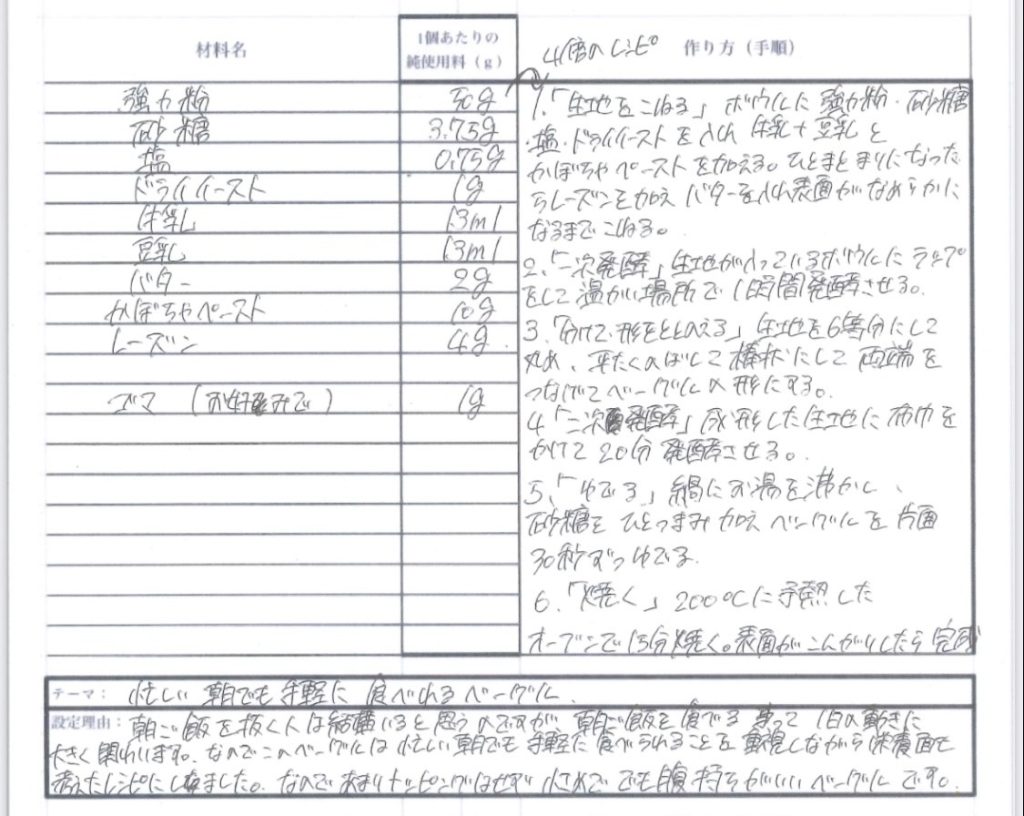 材料名
1個あたりの
純使用料（g）
4倍のレシピ
作り方（手順）
強力粉 50g
砂糖 3.75g
塩 0.75g
ドライイースト 1g
牛乳 13ml
豆乳 13ml
バター 2g
かぼちゃペースト 10g
レーズン 4g
ゴマ （お好みで） 1g
1.「生地をこねる」ボウルに強力粉・砂糖
・塩・ドライイーストを入れ 牛乳+豆乳と
かぼちゃペーストを加える。ひとまとまりになった
らレーズンを加え バターを入れ表面がなめらかに
なるまでこねる。
2、「一次発酵」生地が入っているボウルにラップ
をして温かい場所で1時間発酵させる。
3.「分けて形をととのえる」生地を6等分にして
丸め、平たくのばして棒状にして両端を
つなげてベーグルの形にする。
4「二次発酵」成形した生地に布巾を
かけて20分発酵させる。
5、「ゆでる」鍋にお湯を沸かし、
砂糖をひとつまみ加えベーグルを片面
30秒ずつゆでる.
6.「焼く」200℃に予熱した
オーブンで13分焼く。表面がこんがりしたら完成
テーマ： 忙しい朝でも手軽に食べれるベーグル.
設定理由：朝ご飯を抜く人は結構いると思うのですが、朝ご飯を食べる 1日の動きに
大きく関わります。なのでこのベーグルは忙しい朝でも手軽に食べられることを重視しながら栄養面も
考えたレシピにしました。なのであまりトッピングはせず小さめででも腹持ちがいいベーグルです。